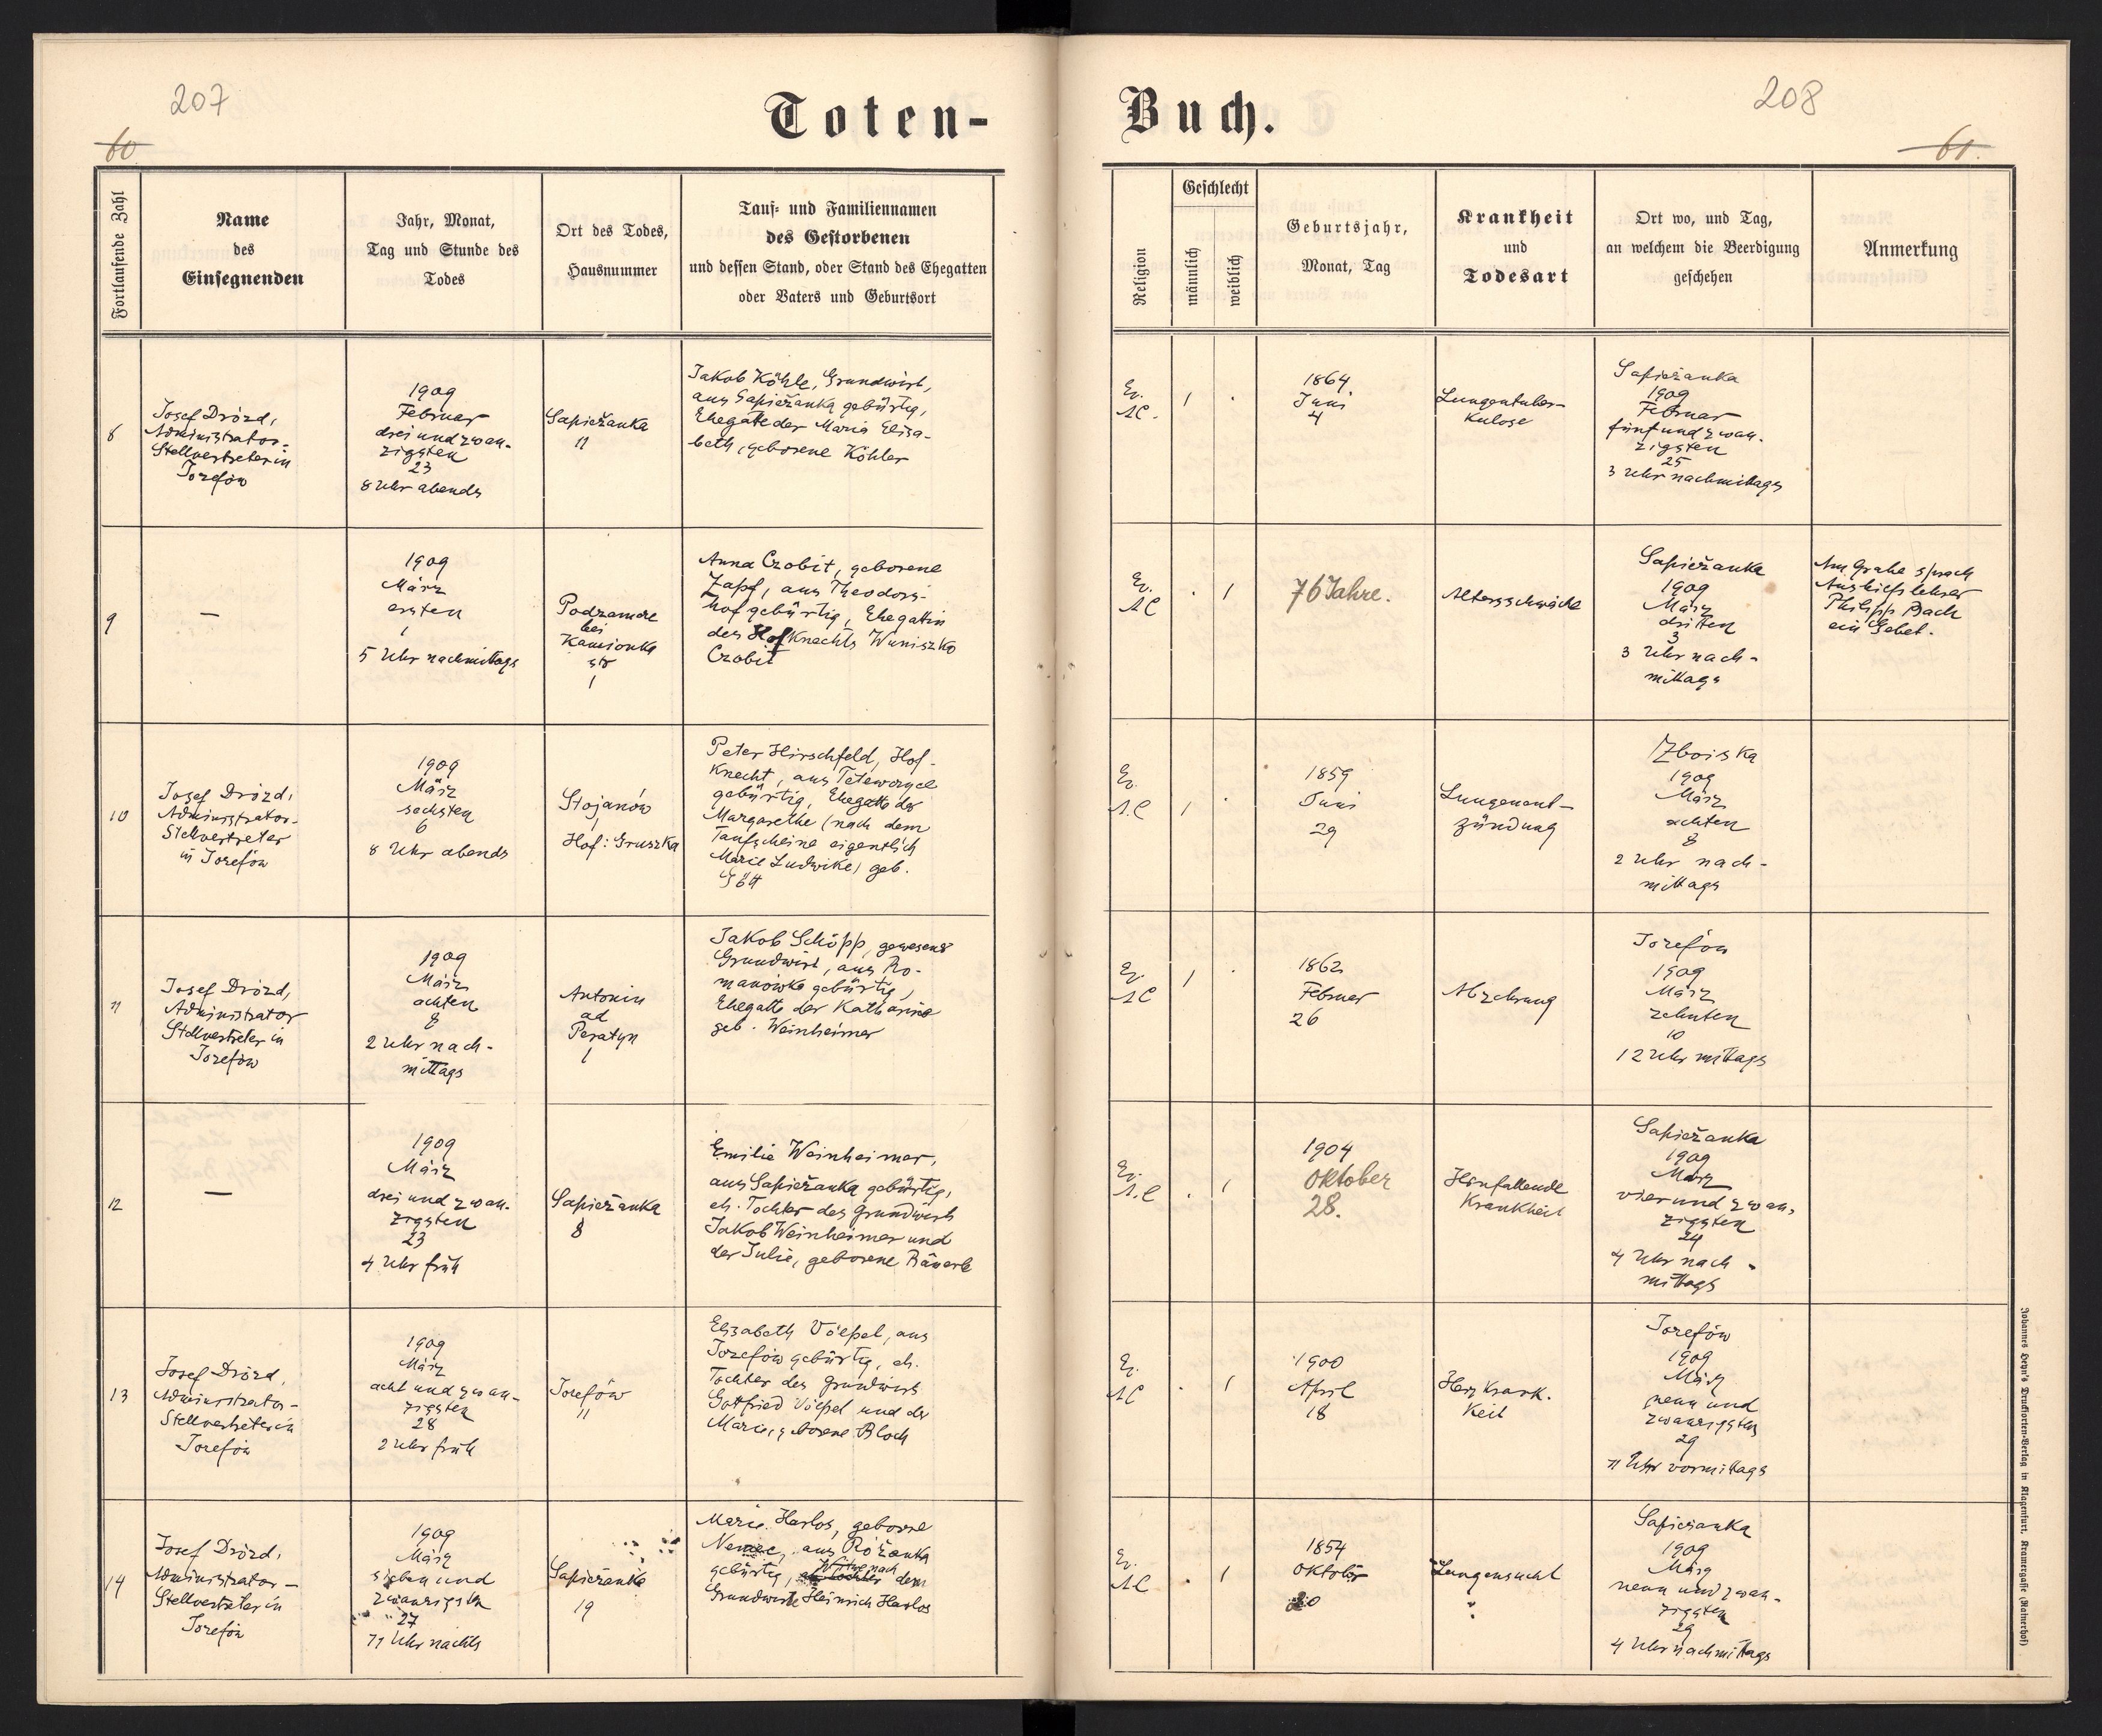 207
60
Toten-
Fortlaufende Zahl
Name
des
Einsegnenden
Jahr, Monat,
Tag und Stunde des
Todes
Ort des Todes,
Hausnummer
Tauf- und Familiennamen
des Gestorbenen
und dessen Stand, oder Stand des Ehegatten
oder Vaters und Geburtsort
8
Josef Drózd,
Administrator-
Stellvertreter in
Josefów
1909
Februar
drei und zwan-
zigsten
23
8 Uhr abends
Sapieżanka
11
Jakob Köhle, Grundwirt,
aus Sapieżanka gebürtig,
Ehegatte der Maria Elisa-
beth, geborene Köhler
9
—
1909
März
ersten
1
5 Uhr nachmittags
Podzamcze
bei
Kamionka
str
1
Anna Czobit, geborene
Zapf, aus Theodors-
hof gebürtig, Ehegattin
des Hofknechts Waniszko
Czobit
10
Josef Drózd,
Administrator-
Stellvertreter
in Josefów
1909
März
sechsten
6
8 Uhr abends
Stojanów
1
Hof: Gruszka
Peter Hirschfeld, Hof-
knecht, aus
gebürtig, Ehegatte der
Margarethe (nach dem
Taufscheine eigentlich
Marie Ludwike) geb.
Gött
11
Josef Drózd,
Administrator
Stellvertreter in
Josefów
1909
März
achten
8
2 Uhr nach-
mittags
Antonin
ad
Peratyn
1
Jakob Schöpp, gewesener
Grundwirt, aus Ro-
manówka gebürtig,
Ehegatte der Katharina
geb. Weinheimer
12
—
1909
März
drei und zwan-
zigsten
23
4 Uhr früh
Sapieżanka
8
Emilie Weinheimer,
aus Sapieżanka gebürtig,
eh. Tochter des Grundwirts
Jakob Weinheimer und
der Julie, geborene Bäuerle
13
Josef Drózd,
Administrator-
Stellvertreter in
Josefów
1909
März
acht und zwan-
zigsten
28
2 Uhr früh
Josefów
11
Elisabeth Völpel, aus
Josefów gebürtig, eh.
Tochter des Grundwirts
Gottfried Völpel und der
Marie, geborene Bloch
14
Josef Drózd,
Administrator-
Stellvertreter in
Josefów
1909
März
sieben und
zwanzigsten
27
11 Uhr nachts
Sapieżanka
19
Marie Harlos, geborene
aus Różanka
gebürtig, Witwe nach dem
Grundwirte Heinrich Harlos
208
61.
Buch.
Religion
Geschlecht
männlich
weiblich
Geburtsjahr,
Monat, Tag
Krankheit
und
Todesart
Ort wo, und Tag,
an welchem die Beerdigung
geschehen
Anmerkung
Ev.
A.C.
1
.
1864
Juni
4
Lungentuber-
kulose
Sapieżanka
1909
Februar
fünf und zwan-
zigsten
25
3 Uhr nachmittags
Ev.
A.C
.
1
76 Jahre.
Altersschwäche
Sapieżanka
1909
März
dritten
3
3 Uhr nach-
mittags
Am Grabe sprach
Aushilfslehrer
Philipp Bach
ein Gebet.
Ev.
A.C
1
.
1859
Juni
29
Lungenent-
zündung
Zboiska
1909
März
achten
8
2 Uhr nach-
mittags
Ev.
A.C
1
.
1862
Februar
26
Abzehrung
Josefów
1909
März
zehnten
10
12 Uhr mittags
Ev.
A.C
.
1
1904
Oktober
28.
Hinfallende
Krankheit
Sapieżanka
1909
März
vier und zwan-
zigsten
24
4 Uhr nach-
mittags
Ev.
A.C
.
1
1900
April
18
Herzkrank-
heit
Josefów
1909
März
neun und
zwanzigsten
29
11 Uhr vormittags
Ev.
A.C
.
1
1854
Oktober
20
Lungensucht
Sapieżanka
1909
März
neun und zwan-
zigsten
29
4 Uhr nachmittags
Johannes Heyn's Drucksorten-Verlag in Klagenfurt, Kramergasse (Rainerhof)